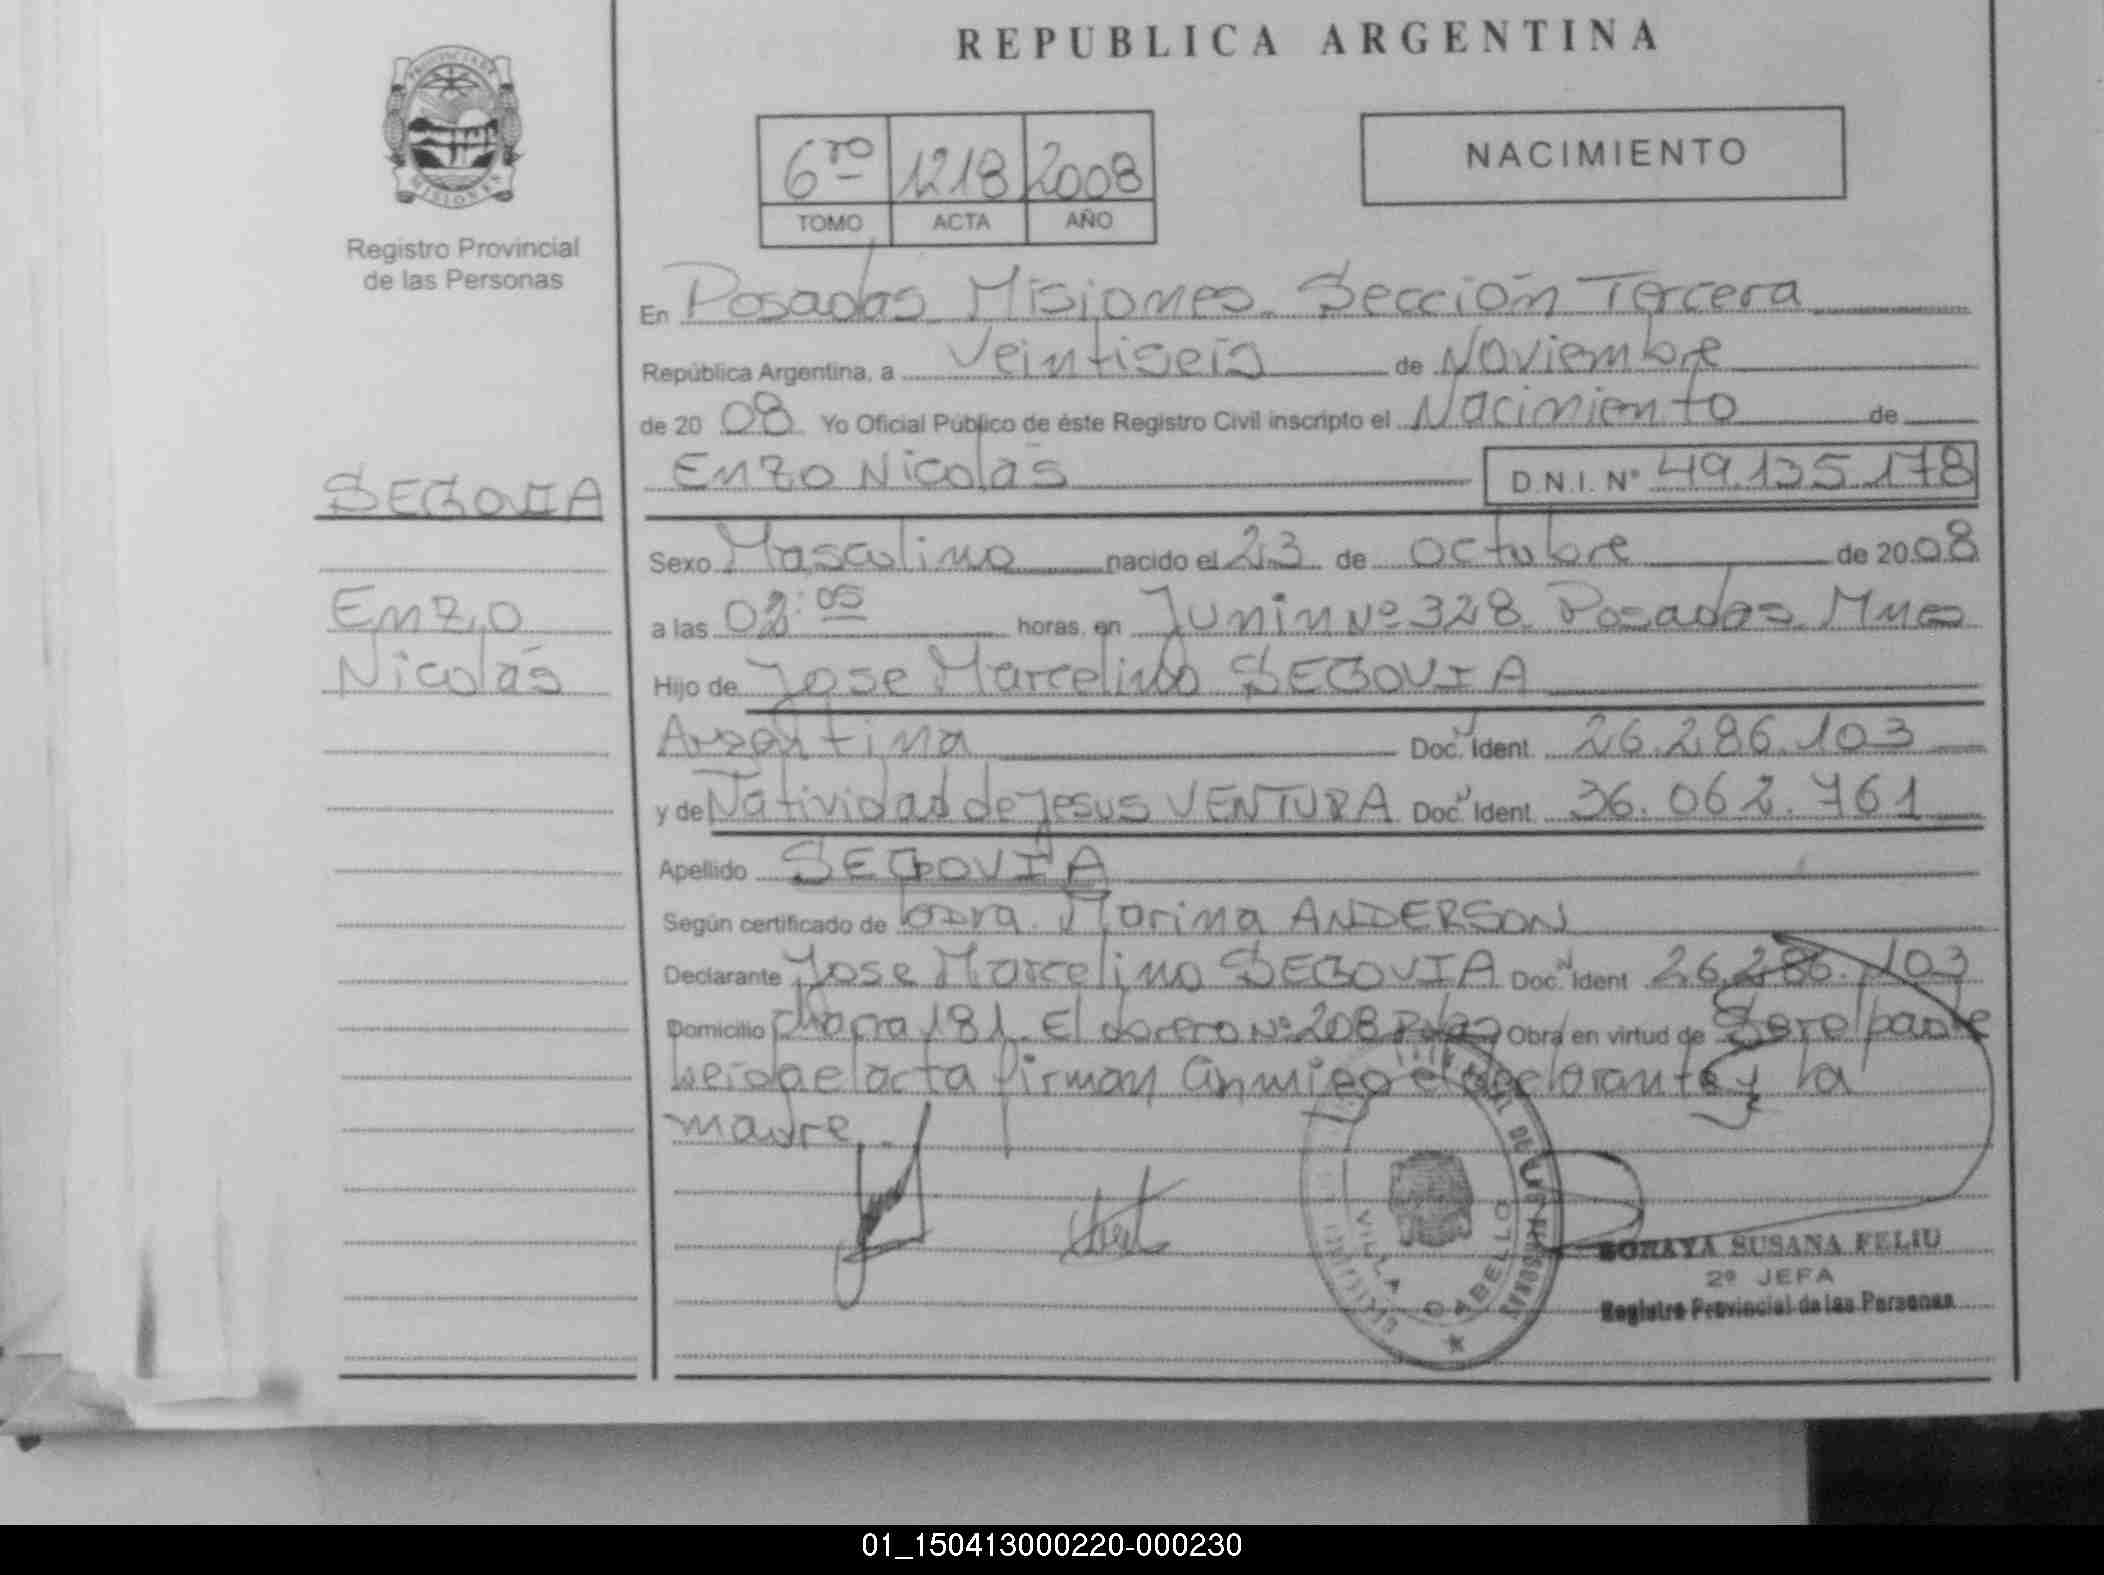 REPUBLICA ARGENTINA
PROVINCIA DE
MISIONES
Registro Provincial
de las Personas
6to 1218 2008
TOMO ACTA AÑO
NACIMIENTO
En Posadas Misiones Sección Tercera
República Argentina, a Veintiseis de Noviembre
de 20 08 Yo Oficial Público de éste Registro Civil inscripto el Nacimiento de
SEGOVIA
Enzo Nicolás D.N.I. Nº 49.135.178
Sexo Masculino nacido el 23 de octubre de 20 08
Enzo
a las 02:05 horas, en Junin Nº 328 Posadas Mnes
Nicolás
Hijo de Jose Marcelino SEGOVIA
Argentina Doc. Ident. 26.286.103
y de Natividad de Jesus VENTURA Doc. Ident. 36.062.761
Apellido SEGOVIA
Según certificado de Marina ANDERSON
Declarante Jose Marcelino SEGOVIA Doc. Ident 26.286.103
Domicilio chacra 181 El dorero Nº 208 Pdas Obra en virtud de Ser el padre
Leida el acta firman conmigo el declarante y la
madre.
VILLA CABELLO
SORAYA SUSANA FELIU
2º JEFA
Registro Provincial de las Personas
01_150413000220-000230